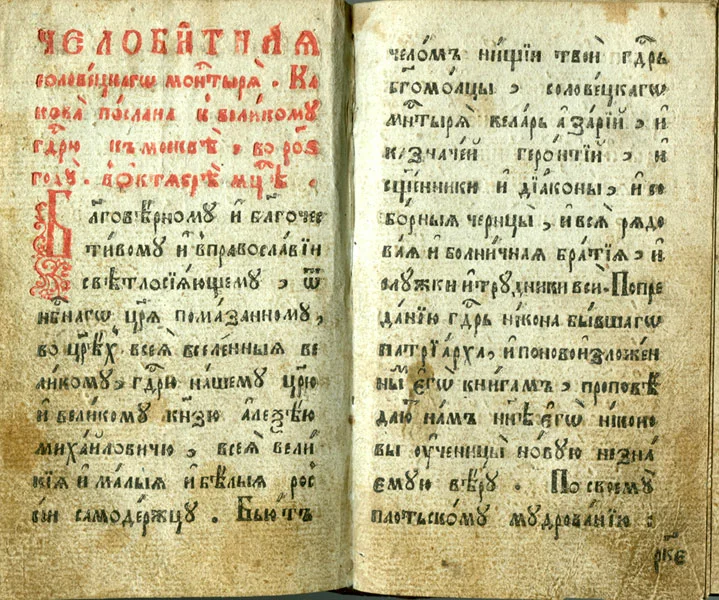 ЧЕЛОБИ́ТНАЯ
соловецкагѡ монⷭ҇тыря̀ . Ка
кова̀ по́слана к̾ вели́кому
гдⷭ҇рю къ москвѣ̀ , во р҃оѕ
году̀ . в̾ ѻ҆ктябрѣ мцⷭ҇ѣ .
Бл҃говѣ́рному и҆ бл҃гочес
ти́вому и҆ в̾ православїи
свѣтлосїя́ющему , ѿ
нбⷭ҇нагѡ цр҃я̀ пома́занному ,
во цр҃ѣⷯ всея̀ вселенныя ве
ли́кому , гдⷭ҇рю на́шему цр҃ю
и҆ вели́кому кн҃зю а҆леѯѣ́ю
миха́йловичю , всея̀ вели́
кїя и҆ ма́лыя и҆ бѣ́лыя рос
сі́и самоде́ржцу . Бью́тъ
чело́мъ ни́щїи твоѝ гдⷭ҇рь
бг҃омо́лцы , соловецкагѡ
мнⷭ҇тыря̀ келарь а҆за́рїй , и҆
казначе́й геро́нтїй , и҆
сщ҃е́нники и҆ дїа́коны , и҆ со
бо́рныя черницы̀ , и҆ вся̀ рядо
ва́я и҆ болни́чная бра́тїя , и҆
служки и҆ тру́дники всѝ . По пре
да́нїю гдⷭ҇рь ни́кона бы́вшагѡ
патрїа́рха , и҆ по новоизложе́н
нымъ є҆гѡ̀ кни́гамъ , проповѣ́
даю́тъ на́мъ нн҃ѣ є҆гѡ̀ ни́коно
вы ѹ҆ченицы̀ но́вую незна́
емую вѣ́ру . По своемꙋ̀
пло́тьскому мудрова́нїю ,
рк҃є